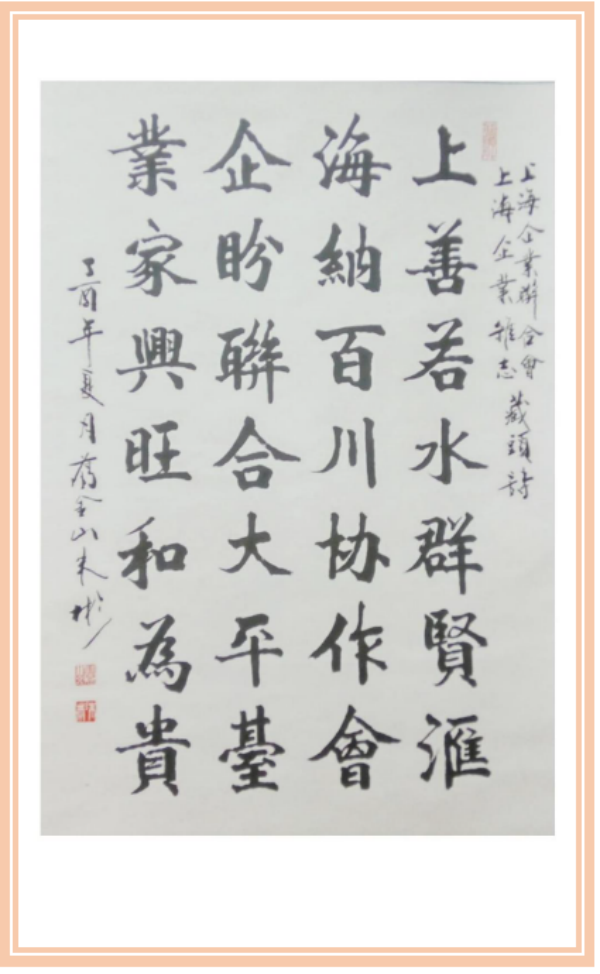 上海企業聯合會
上海企業雜志 藏頭詩
上善若水群賢滙
海納百川协作會
企盼聯合大平臺
業家興旺和為貴
丁酉年夏月 金山 彬